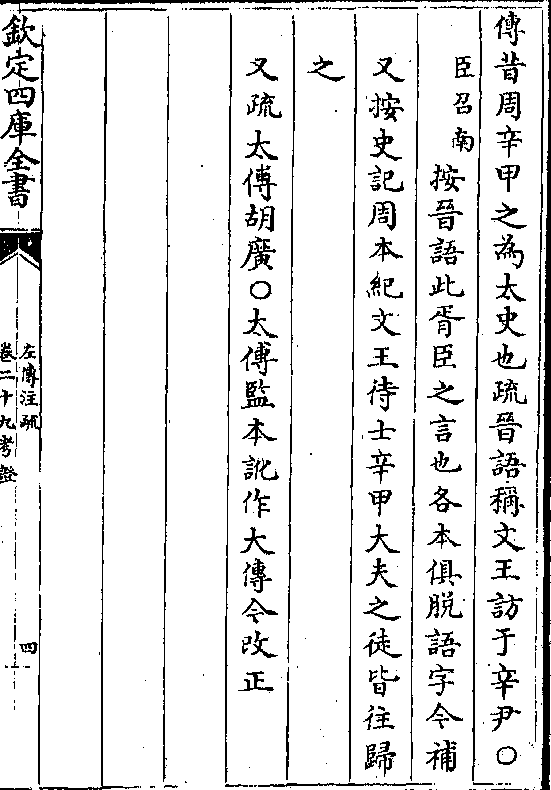 傳昔周辛甲之為太史也疏晉語稱文王訪于辛尹○
臣召南按晉語此胥臣之言也各本俱脱語字今補
又按史記周本紀文王待士辛甲大夫之徒皆往歸
之
又疏太傅胡廣○太傅監本訛作大傅今改正
欽定四庫全書
左傳注疏
卷二十九考證
四